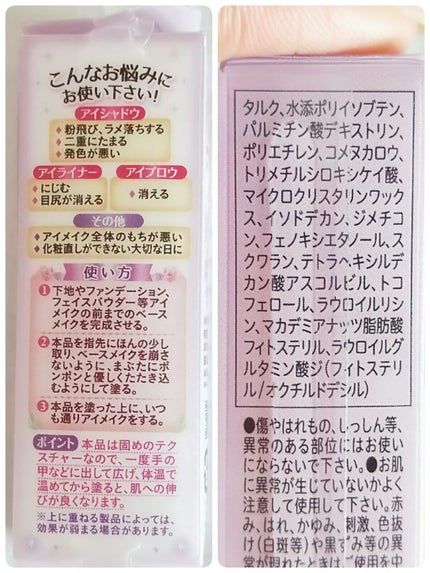 こんなお悩みに
お使い下さい!
アイシャドウ
◆粉飛び、ラメ落ちする
◆二重にたまる
◆発色が悪い
アイライナー
◆にじむ
◆目尻が消える
アイブロウ
◆消える
その他
◆アイメイク全体のもちが悪い
◆化粧直しができない大切な日に
使い方
1 下地やファンデーション、
フェイスパウダー等アイ
メイクの前までのベース
メイクを完成させる。
2 本品を指先にほんの少し
取り、ベースメイクを崩さ
ないように、まぶたにポ
ンポンと優しくたたき込
むようにして塗る。
3 本品を塗った上に、いつ
も通りアイメイクをする。
ポイント 本品は固めのテク
スチャーなので、一度手の
甲などに出して広げ、体温で
温めてから塗ると、肌への伸
びが良くなります。
※上に重ねる製品によっては、
効果が弱まる場合があります。
タルク、水添ポリイソブテン、
パルミチン酸デキストリン、
ポリエチレン、コメヌカロウ、
トリメチルシロキシケイ酸、
マイクロクリスタリンワック
ス、イソドデカン、ジメチコ
ン、フェノキシエタノール、ス
クワラン、テトラヘキシルデ
カン酸アスコルビル、トコ
フェロール、ラウロイルリシ
ン、マカデミアナッツ脂肪酸
フィトステリル、ラウロイルグ
ルタミン酸ジ(フィトステリ
ル/オクチルドデシル)
●傷やはれもの、しっしん等、
異常のある部位にはお使い
にならないで下さい。●お肌
に異常が生じていないかよく
注意して使用して下さい。赤
み、はれ、かゆみ、刺激、色抜
け(白斑等)や黒ずみ等の異
常が現れたときは、ご使用を中